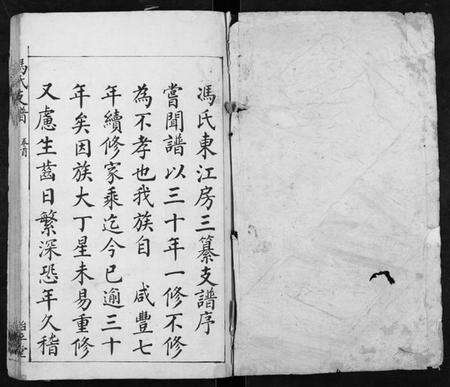 馮氏東江房三纂支譜序
嘗聞譜以三十年一修不修
為不孝也我族自 咸豐七
年續修家乘迄今已逾三十
年矣因族大丁星未易重修
又慮生齒日繁深恐年久稽
馮氏支譜 卷首